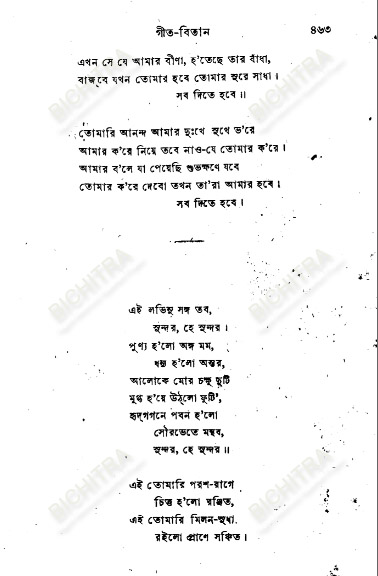 গীত-বিতান ৪৬৩
এখন সে যে আমার বীণা, হ'তেছে তার বাঁধা,
বাজবে যখন তোমার হবে তোমার সুরে সাধা।
সব দিতে হবে॥
তোমারি আনন্দ আমার দুঃখে সুখে ভ'রে
আমার ক'রে নিয়ে তবে নাও-যে তোমার ক'রে।
আমার ব'লে যা পেয়েছি শুভক্ষণে যবে
তোমার ক'রে দেবো তখন তা'রা আমার হবে।
সব দিতে হবে।
এই লভিনু সঙ্গ তব,
সুন্দর, হে সুন্দর।
পুণ্য হ'লো অঙ্গ মম,
ধন্য হ'লো অন্তর,
আলোকে মোর চক্ষু দুটি
মুগ্ধ হ'য়ে উঠলো ফুটি',
হৃদ্‌গগনে পবন হ'লো
সৌরভেতে মন্থর,
সুন্দর, হে সুন্দর॥
এই তোমারি পরশ-রাগে
চিত্ত হ'লো রঞ্জিত,
এই তোমারি মিলন-সুধা
রইলো প্রাণে সঞ্চিত।
BICHITRA
BICHITRA
BICHITRA
BICHITRA
BICHITRA
BICHITRA